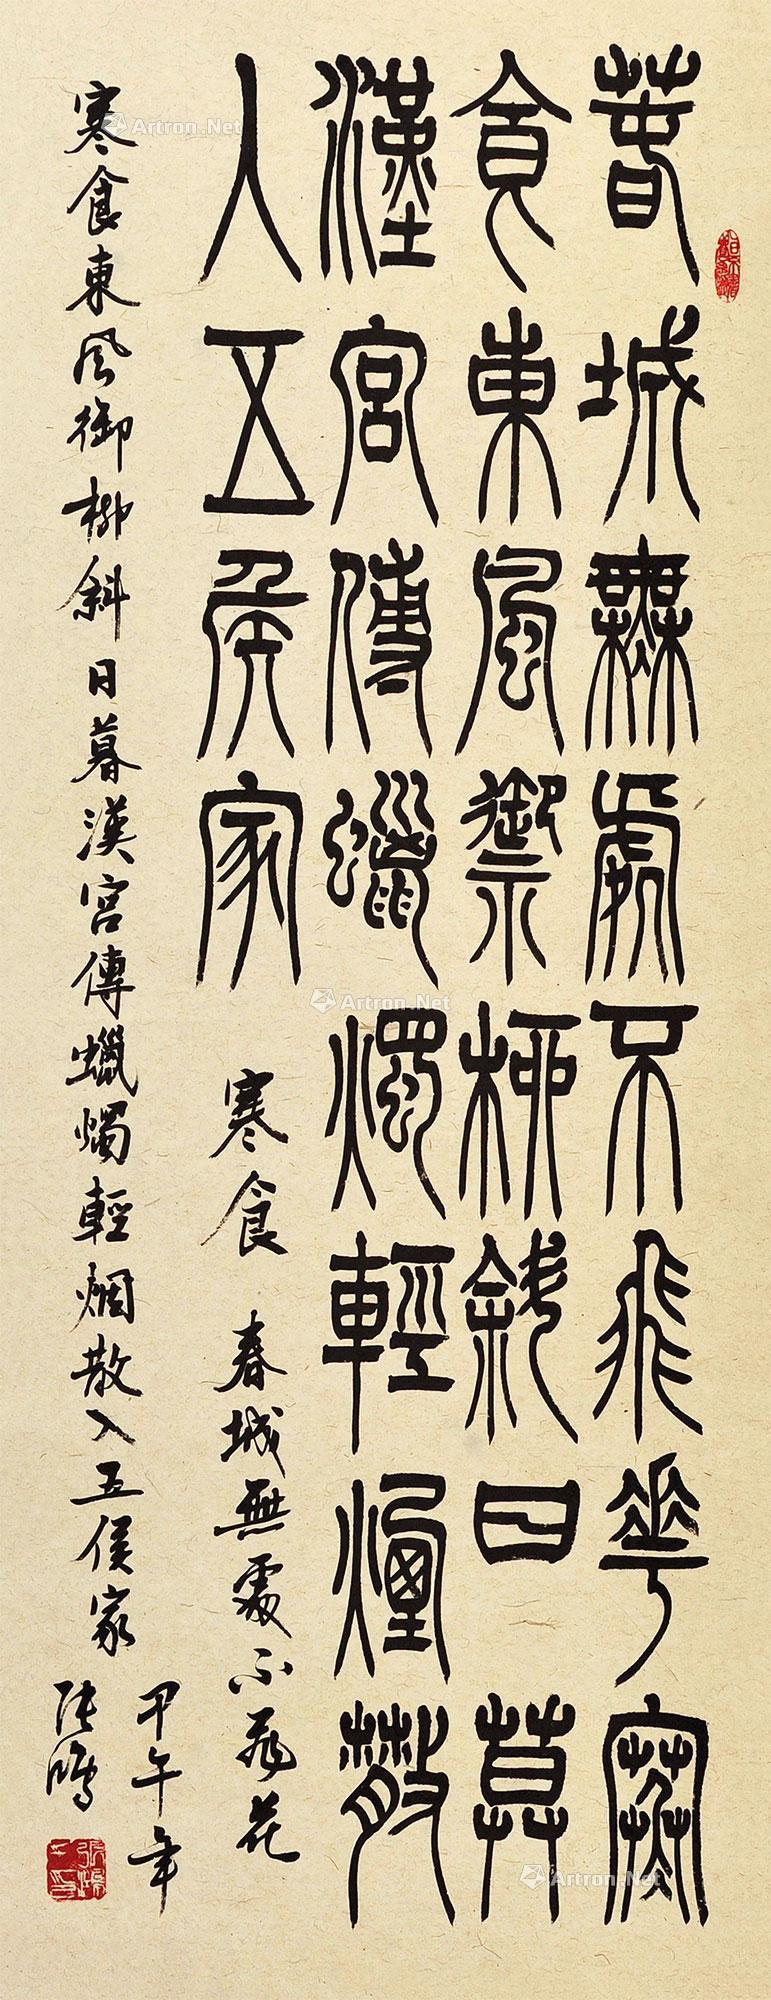 春城無處不飛華寒
食東風禦柳斜日莫
漢宮傳蠟燭輕煙散
入五侯家
寒食 春城無處不飛花
寒食東風御柳斜日暮漢宮傳蠟燭輕烟散入五侯家
甲午年
張
Artron.Net
Artron.Net
Artron.Net